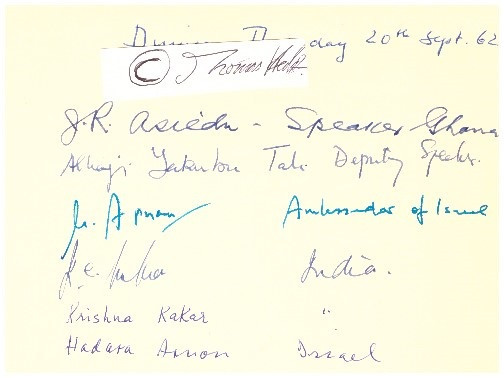 day 20th Sept. 62
© Thomas
J.R. Asiedu - Speaker Ghana
Alhaji Yakubu Tali Deputy Speaker.
Ambassador of Israel
India.
Krishna Kakar "
Hadara Arnon Israel